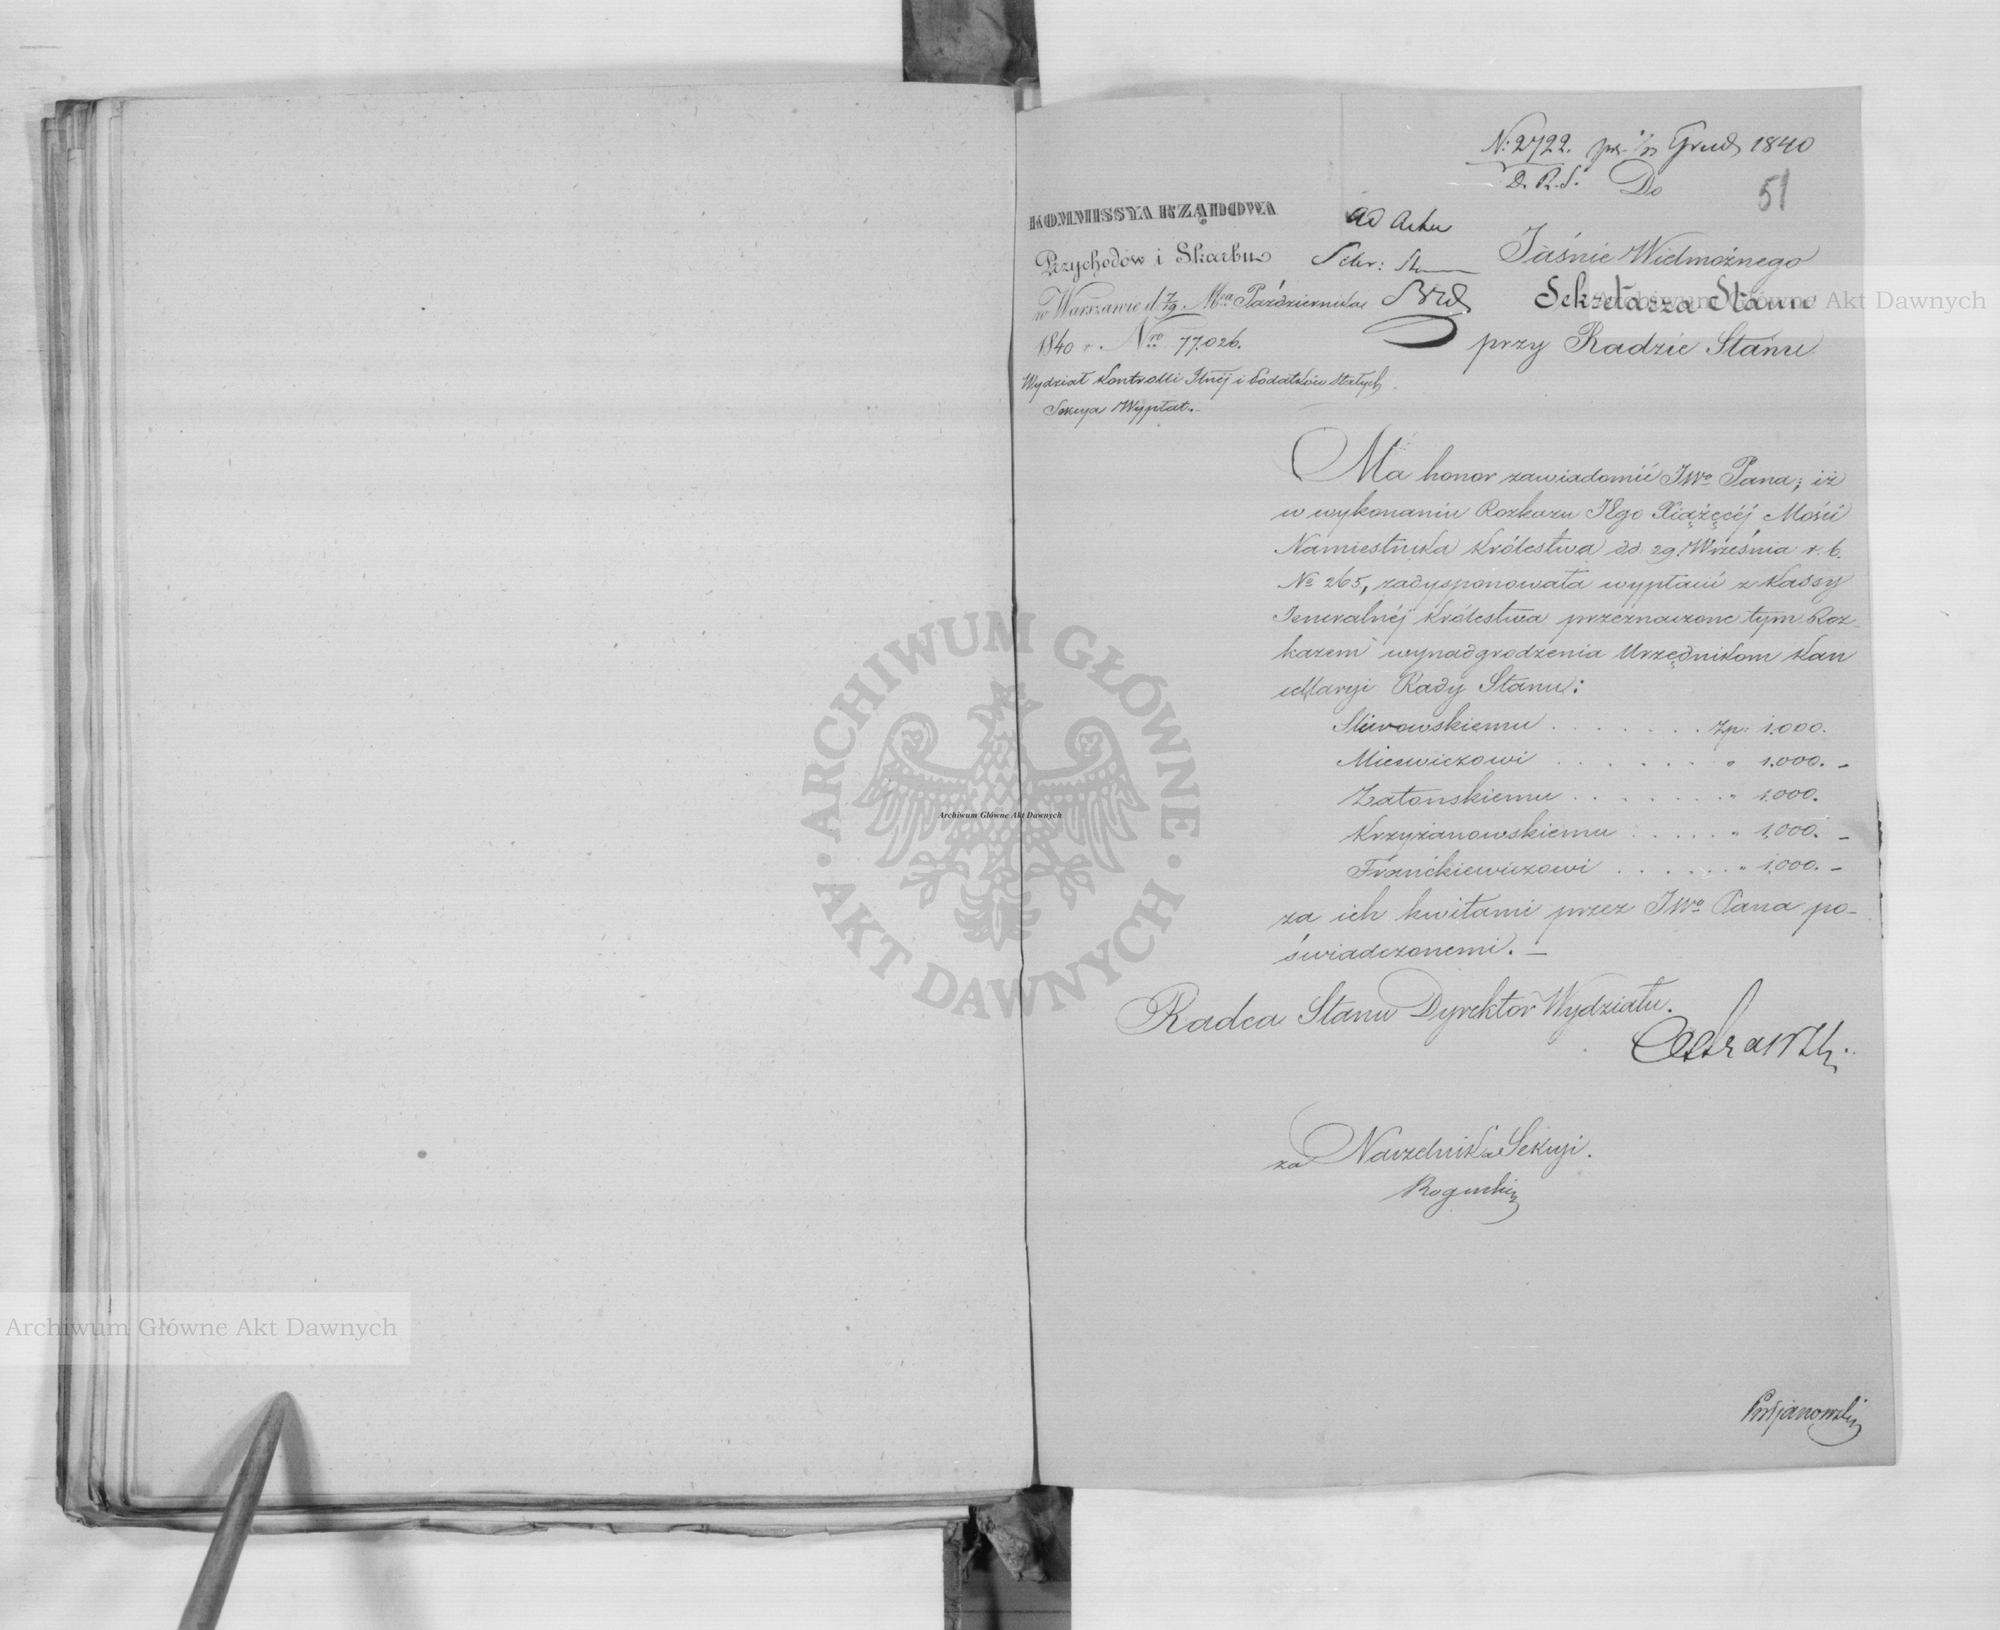 N: 2722. Grud 1840
D. R. S. Do
51
KOMMISSYA RZĄDOWA
Przychodów i Skarbu
w Warszawie d. 7/19. Mca Października
1840 r. Nro 77.026.
Wydział Kontrolli Jlnéj i Podatków Stałych
Sekcya Wypłat.
ad Acta
Sekr: St
Jaśnie Wielmożnego
Sekretarza Stanu
przy Radzie Stanu
Ma honor zawiadomić JWo Pana; iż
w wykonaniu Rozkazu JEgo Xiążęcéj Mości
Namiestnika Królestwa dd 29. Września r. b.
No 265, zadysponowała wypłacić z Kassy
Jeneralnéj Królestwa przeznaczone tym Roz-
kazem wynadgrodzenia Urzędnikom Kan
cellaryi Rady Stanu:
. . . . . . . Zp: 1.000.
Micewiczowi . . . . . . " 1.000. -
Zatonskiemu . . . . . . . " 1,000.
Krzyżanowskiemu . . . . . " 1,000. -
Franckiewiczowi . . . . . . " 1,000. -
za ich kwitami przez JWo Pana po-
świadczonemi. -
Radca Stanu Dyrektor Wydziału.
za Naczelnika Sekcyi.
Roguski
Archiwum Główne Akt Dawnych
ARCHIWUM GŁÓWNE · AKT DAWNYCH ·
Archiwum Główne Akt Dawnych
Archiwum Główne Akt Dawnych